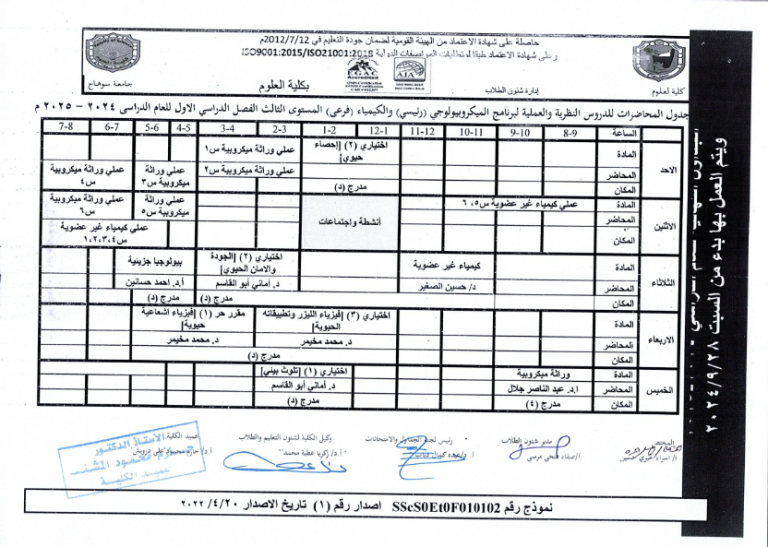 حاصلة على شهادة الاعتماد من الهيئة القومية لضمان جودة التعليم في 2012/7/12م
وعلى شهادة الاعتماد طبقا لمتطلبات المواصفات الدولية ISO9001:2015/ISO21001:2018
EGAC
جامعة سوهاج
بكلية العلوم
إدارة شئون الطلاب
كلية العلوم
جدول المحاضرات للدروس النظرية والعملية لبرنامج الميكروبيولوجي (رئيسي) والكيمياء (فرعى) المستوى الثالث الفصل الدراسي الاول للعام الدراسى ٢٠٢٤ - ٢٠٢٥ م
الساعة 8-9 9-10 10-11 11-12 12-1 1-2 2-3 3-4 4-5 5-6 6-7 7-8
الاحد
المادة
اختياري (٢) |إحصاء حيوي|
عملي وراثة ميكروبية س١
المحاضر
عملي وراثة ميكروبية س٢
عملي وراثة ميكروبية س٣
عملي وراثة ميكروبية س٤
المكان
مدرج (د)
الاثنين
المادة
عملي كيمياء غير عضوية س٥، ٦
أنشطة واجتماعات
عملي وراثة ميكروبية س٥
عملي وراثة ميكروبية س٦
المحاضر
المكان
عملي كيمياء غير عضوية س١،٢،٣،٤
الثلاثاء
المادة
كيمياء غير عضوية
اختياري (٢) |الجودة والامان الحيوي|
بيولوجيا جزيئية
المحاضر
د/ حسين الصغير
د. أماني أبو القاسم
أ.د. احمد حسانين
المكان
مدرج (د)
مدرج (د)
الاربعاء
المادة
اختياري (٣) |فيزياء الليزر وتطبيقاته الحيوية|
مقرر حر (١) |فيزياء اشعاعية حيوية|
المحاضر
د. محمد مخيمر
د. محمد مخيمر
المكان
مدرج (د)
الخميس
المادة
وراثة ميكروبية
اختياري (١) |تلوث بيئي|
المحاضر
ا.د. عبد الناصر جلال
د. أماني أبو القاسم
المكان
مدرج (٤)
مدرج (د)
ويتم العمل بها بدء من السبت ٢٠٢٤/٩/٢٨
المختص
مدير شئون الطلاب
رئيس لجنة الجداول والامتحانات
وكيل الكلية لشئون التعليم والطلاب
عميد الكلية
أ.د/ زكريا عطية محمد
الأستاذ الدكتور
عميد الكلية
نموذج رقم SScS0Et0F010102 اصدار رقم (١) تاريخ الاصدار ٢٠٢٢/٤/٢٠